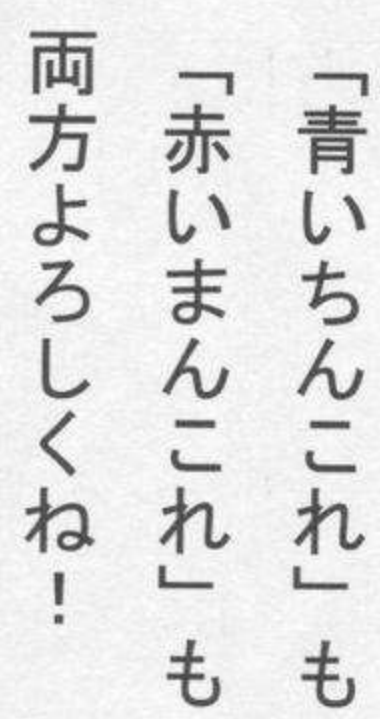 「青いちんこれ」も
「赤いまんこれ」も
両方よろしくね！